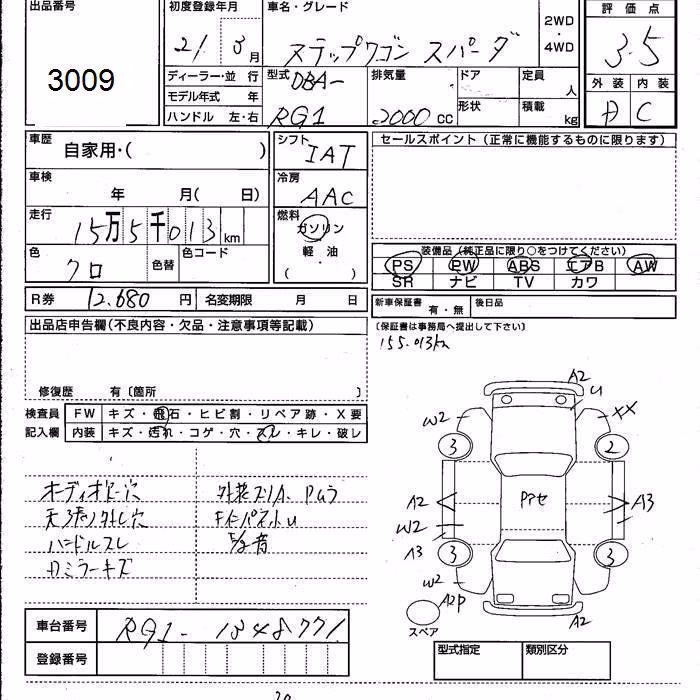 出品番号
3009
初度登録年月
21 3月
車名・グレード
ステップワゴン スパーダ
2WD
・
4WD
評価点
3.5
ディーラー・並 行
モデル年式 年
ハンドル 左・右
型式
DBA-
RG1
排気量
2000 cc
ドア
形状
定員
人
積載
kg
外装 内装
A C
車歴
自家用・( )
車検
年 月( 日)
走行
15万5千013km
色
クロ
色替
色コード
シフト
IAT
冷房
AAC
燃料
ガソリン
軽 油
( ・ )
セールスポイント(正常に機能するものに限ります)
装備品(純正品に限り○をつけてください)
PS PW ABS エアB AW
SR ナビ TV カワ
R券 12,680 円 名変期限 月 日
新車保証書 有・無 後日品
(保証書は事務局へ提出して下さい)
155.013km
出品店申告欄(不良内容・欠品・注意事項等記載)
修復歴 有〔箇所 〕
検査員
記入欄
FW キズ・飛石・ヒビ割・リペア跡・X要
内装 キズ・汚れ・コゲ・穴・スレ・キレ・破レ
天張り外し穴
ハンドルスレ
Dミラーキズ
A2
U
W2
XX
3
2
A2
A3
W2
A3
3
3
W2
A2P
A2
スペア
車台番号 RG1-1348771
登録番号
型式指定 類別区分